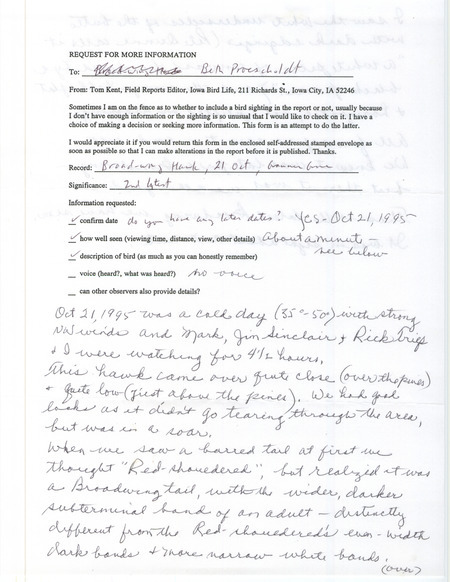 REQUEST FOR MORE INFORMATION
To: Beth Proescholdt
From: Tom Kent, Field Reports Editor, Iowa Bird Life, 211 Richards St., Iowa City, IA 52246
Sometimes I am on the fence as to whether to include a bird sighting in the report or not, usually because
I don't have enough information or the sighting is so unusual that I would like to check on it. I have a
choice of making a decision or seeking more information. This form is an attempt to do the latter.
I would appreciate it if you would return this form in the enclosed self-addressed stamped envelope as
soon as possible so that I can make alterations in the report before it is published. Thanks.
Record: Broad-wing Hawk, 21 Oct,
Significance: 2nd latest
Information requested:
✓ confirm date do you have any later dates? Yes - Oct 21, 1995
✓ how well seen (viewing time, distance, view, other details) About a minute -
see below
✓ description of bird (as much as you can honestly remember)
_ voice (heard?, what was heard?) no voice
_ can other observers also provide details?
Oct 21, 1995 was a cold day (35°-50°) with strong
NW winds and Mark, Jim Sinclair & Rick Trieff
& I were watching for 4 1/2 hours.
This hawk came over quite close (over the pines)
& quite low (just above the pines). We had good
looks as it didn't go tearing through the area,
but was in a soar.
When we saw a barred tail at first we
thought "Red-shouedered", but realized it was
a Broadwing tail, with the wider, darker
subterminal band of an adult - distinctly
different from the Red-shouedered's even-width
dark bands & more narrow white bands.
(over)